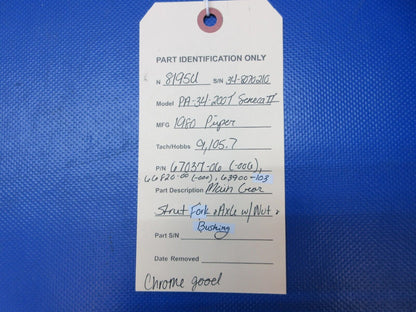 PART IDENTIFICATION ONLY
N 8195U S/N 34-8070210
Model PA-34 200T Seneca II
MFG 1980 Piper
Tach/Hobbs 9,105.7
P/N 67037-06 (-006),
66820-00 (-000), 63900-103
Part Description Main Gear
Strut Fork, Axle w/ Nut,
Bushing
Part S/N
Date Removed
Chrome good